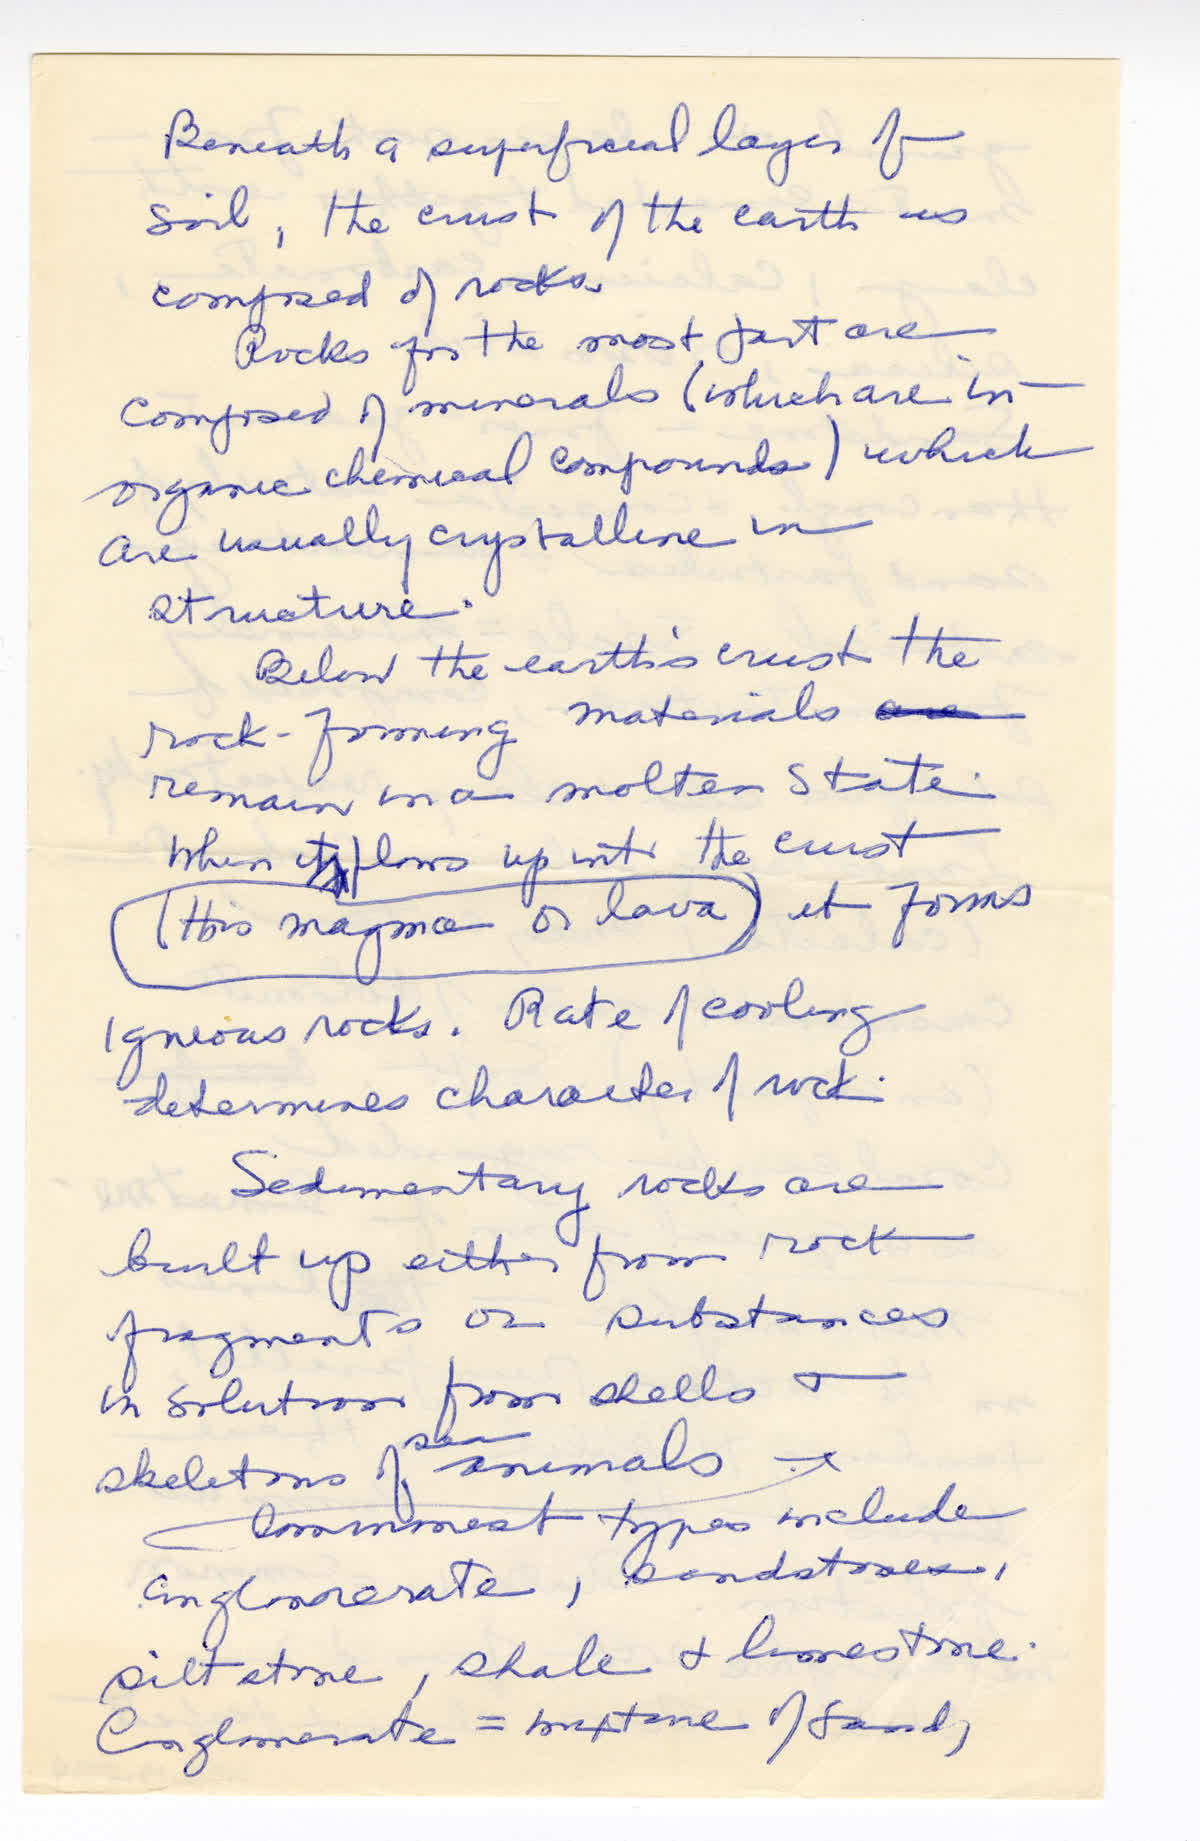 Beneath a superficial layer of
soil, the crust of the earth is
composed of rocks.
Rocks for the most part are
composed of minerals (which are in-
organic chemical compounds) which
are usually crystalline in
structure.
Below the earth's crust the
rock-forming materials are
remain in a molten state.
When it flows up into the crust
(this magma or lava) it forms
igneous rocks. Rate of cooling
determines character of rock.
Sedimentary rocks are
built up either from rock
fragments or substances
in solution from shells or
skeletons of sea animals
Commonest types include
conglomerate, sandstones,
siltstone, shale & limestone.
Conglomerate = mixture of sand,